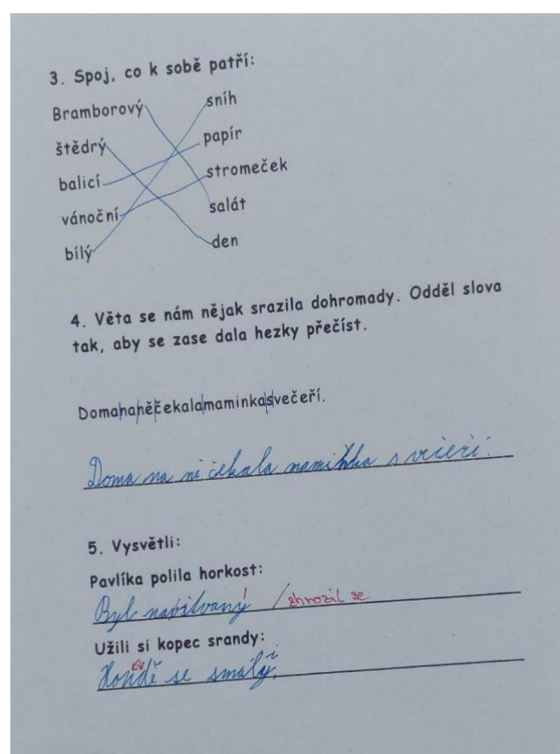 3. Spoj, co k sobě patří:
Bramborový sníh
štědrý papír
balicí stromeček
vánoční salát
bílý den
4. Věta se nám nějak srazila dohromady. Odděl slova
tak, aby se zase dala hezky přečíst.
Domananěčekalamaminkasvečeří.
Doma na ně čekala maminka s
5. Vysvětli:
Pavlíka polila horkost:
Byl /zhrozil se
Užili si kopec srandy:
se smály.